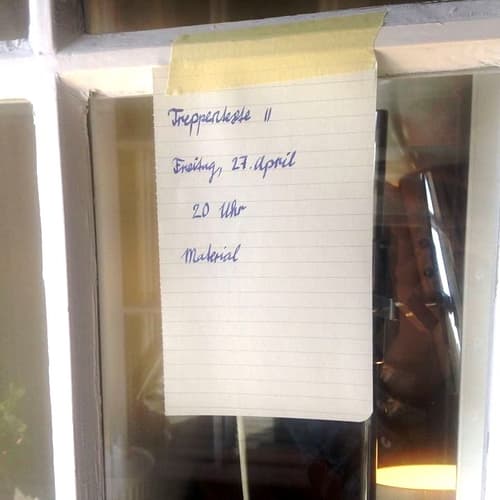 Treppentexte II
Freitag, 27. April
20 Uhr
Material